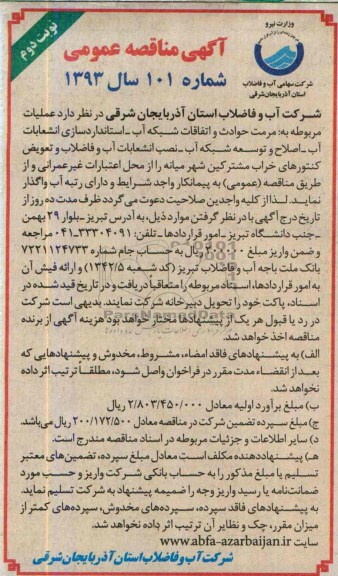 نوبت دوم
وزارت نیرو
آگهی مناقصه عمومی
شماره ۱۰۱ سال ۱۳۹۳
شرکت سهامی آب و فاضلاب
استان آذربایجان شرقی
شرکت آب و فاضلاب استان آذربایجان شرقی در نظر دارد عملیات
مربوطه به: مرمت حوادث و اتفاقات شبکه آب ـ استانداردسازی انشعابات
آب ـ اصلاح و توسعه شبکه آب ـ نصب انشعابات آب و فاضلاب و تعویض
کنتورهای خراب مشترکین شهر میانه را از محل اعتبارات غیرعمرانی و از
طریق مناقصه (عمومی) به پیمانکار واجد شرایط و دارای رتبه آب واگذار
نمایند. لذا از کلیه واجدین صلاحیت دعوت می گردد ظرف مدت ده روز از
تاریخ درج آگهی با در نظر گرفتن موارد ذیل، به آدرس تبریز ـ بلوار ۲۹ بهمن
ـ جنب دانشگاه تبریز ـ امور قراردادها ـ تلفن: ۳۳۳۰۴۰۹۱-۰۴۱ مراجعه
و ضمن واریز مبلغ ریال به حساب جام شماره ۷۲۲۱۱۲۴۷۳۳
بانک ملت باجه آب و فاضلاب تبریز (کد شعبه ۱۳۴۲/۵) و ارائه فیش آن
به امور قراردادها، اسناد مربوطه را متعاقباً دریافت و در تاریخ قید شده در
اسناد، پاکت خود را تحویل دبیرخانه شرکت نمایند. بدیهی است شرکت
در رد یا قبول هر یک از پیشنهادها مختار خواهد بود هزینه آگهی از برنده
مناقصه اخذ خواهد شد.
الف) به پیشنهادهای فاقد امضاء، مشروط، مخدوش و پیشنهادهایی که
بعد از انقضاء مدت مقرر در فراخوان واصل شود، مطلقاً ترتیب اثر داده
نخواهد شد.
ب) مبلغ برآورد اولیه معادل ۲/۸۰۳/۴۵۰/۰۰۰ ریال
ج) مبلغ سپرده تضمین شرکت در مناقصه معادل ۲۰۰/۱۷۲/۵۰۰ ریال می‌باشد.
د) سایر اطلاعات و جزئیات مربوطه در اسناد مناقصه مندرج است.
هـ) پیشنهاددهنده مکلف است معادل مبلغ سپرده، تضمین‌های معتبر
تسلیم یا مبلغ مذکور را به حساب بانکی شرکت واریز و حسب مورد
ضمانت‌نامه یا رسید واریز وجه را ضمیمه پیشنهاد به شرکت تسلیم نماید.
به پیشنهادهای فاقد سپرده، سپرده‌های مخدوش، سپرده‌های کمتر از
میزان مقرر، چک و نظایر آن ترتیب اثر داده نخواهد شد.
سایت www.abfa-azarbaijan.ir
شرکت آب و فاضلاب استان آذربایجان شرقی